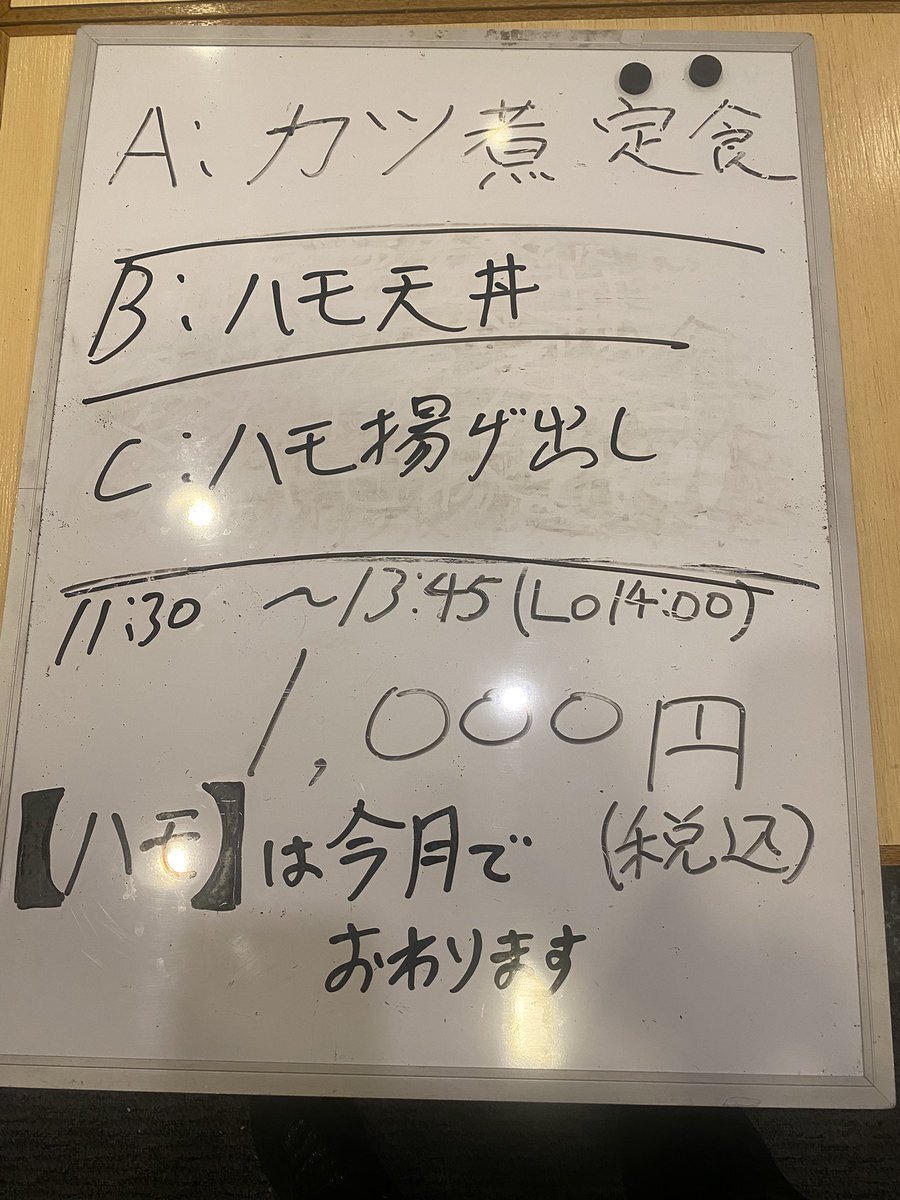 A: カツ煮定食
B: ハモ天丼
C: ハモ揚げ出し
11:30 〜13:45(LO14:00)
1,000円
(税込)
【ハモ】は今月で
おわります